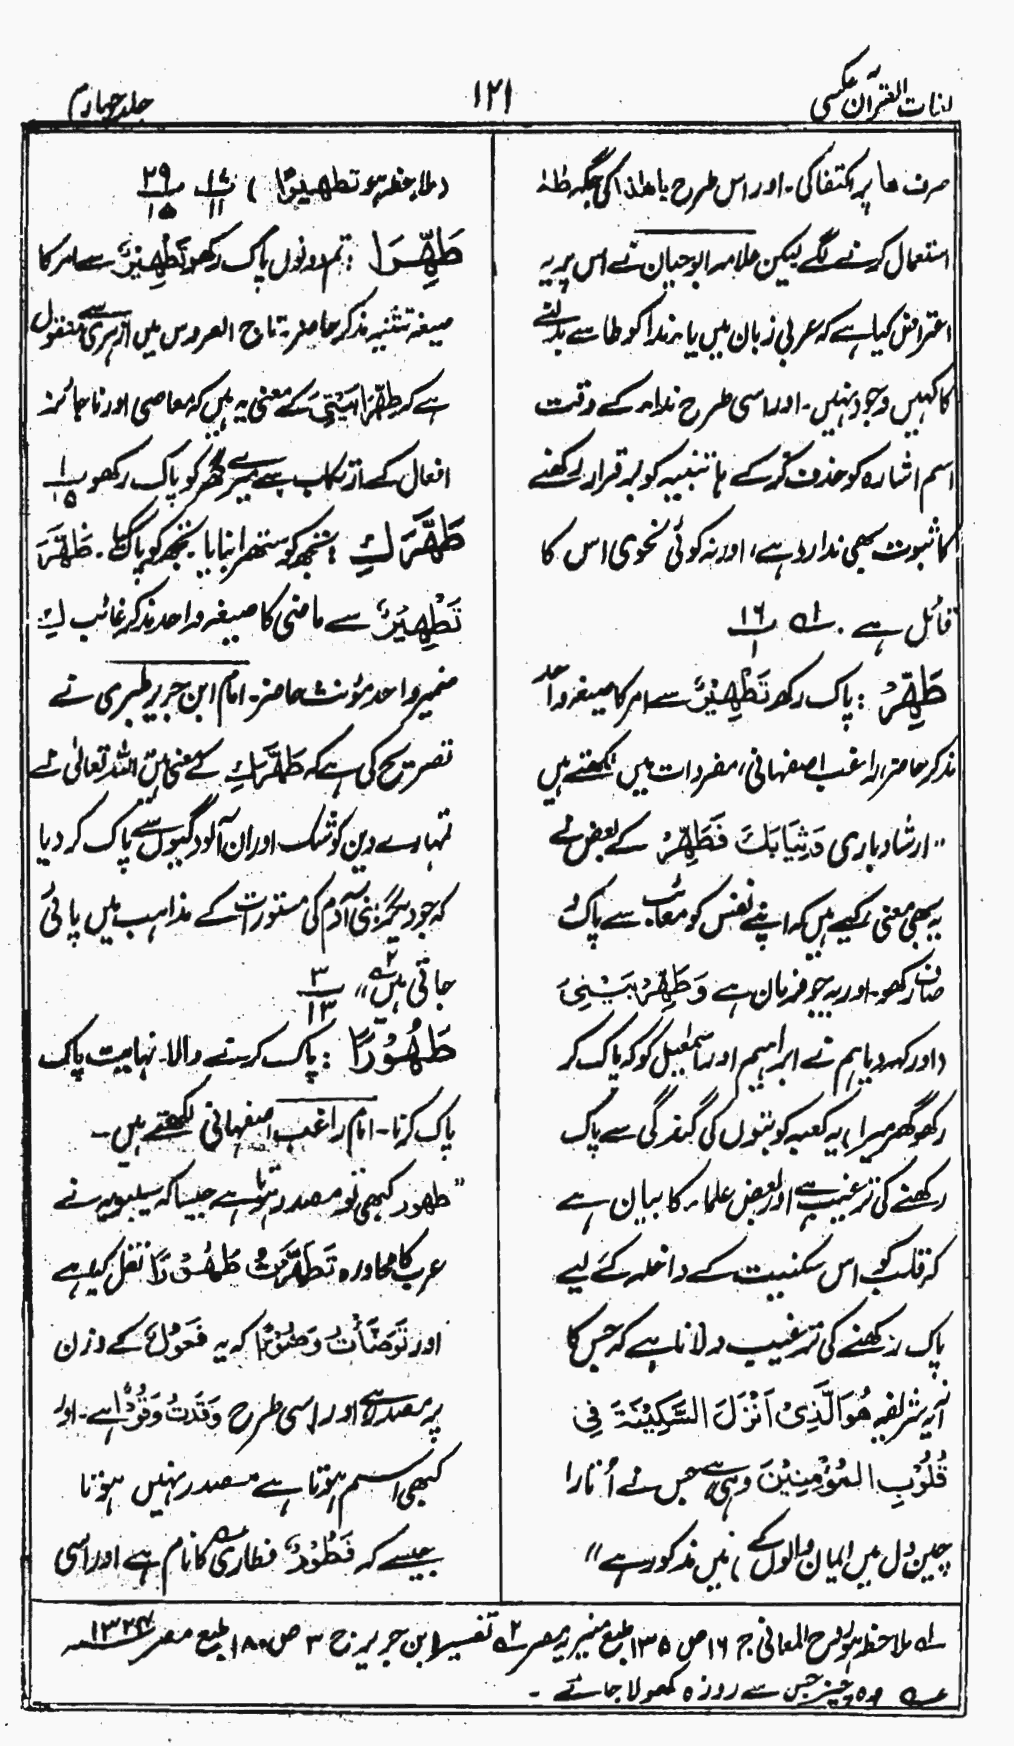 لغات القرآن عکسی
۱۲۱
جلد چہارم
صرف ھا پر اکتفا کی۔ اور اس طرح یا ھٰذا کی جگہ طٰہٰ
استعمال کرنے لگے لیکن علامہ ابو حیان نے اس پر یہ
اعتراض کیا ہے کہ عربی زبان میں یا ندا کو طا سے بدلنے
کا کہیں وجود نہیں۔ اور اسی طرح نداء کے وقت
اسم اشارہ کو حذف کر کے ہا تنبیہ کو برقرار رکھنے
کا ثبوت بھی ندارد ہے، اور نہ کوئی نحوی اس کا
قائل ہے۔ ؎۱ ۱۶/۱
طَهِّرْ : پاک رکھ تَطْهِيْرٌ سے امر کا صیغہ واحد
مذکر حاضر، راغب اصفہانی، مفردات میں لکھتے ہیں
"ارشاد باری وَثِيَابَكَ فَطَهِّرْ کے بعض نے
یہ بھی معنی کیے ہیں کہ اپنے نفس کو معائب سے پاک و
صاف رکھو۔ اور یہ جو فرمان ہے وَطَهِّرْ بَيْتِيَ
(اور کہہ دیا ہم نے ابراہیم اور اسمٰعیل کو کہ پاک کر
رکھو گھر میرا) یہ کعبہ کو بتوں کی گندگی سے پاک
رکھنے کی ترغیب ہے اور بعض علماء کا بیان ہے
کہ قلب کو اس سکنیت کے داخلہ کے لیے
پاک رکھنے کی ترغیب دلانا ہے کہ جس کا
آیہ شریفہ هُوَ الَّذِيْ اَنْزَلَ السَّكِيْنَةَ فِيْ
قُلُوْبِ الْمُؤْمِنِيْنَ (وہی ہے جس نے اُتارا
چین دل میں ایمان والوں کے) میں مذکور ہے"
(ملاحظہ ہو تطهيرًا) ۱۷/۱۱ ۲۹/۱۵
طَهِّرَا : تم دونوں پاک رکھو تَطْهِيْرٌ سے امر کا
صیغہ تثنیہ مذکر حاضر، تاج العروس میں ازہری سے منقول
ہے کہ طَهِّرَا بَيْتِيَ کے معنی یہ ہیں کہ معاصی اور ناجائز
افعال کے ارتکاب سے میرے گھر کو پاک رکھو ۱/۱۵
طَهَّرَكِ : تجھ کو ستھرا بنایا۔ تجھ کو پاک کیا۔ طَهَّرَ
تَطْهِيْرٌ سے ماضی کا صیغہ واحد مذکر غائب كِ
ضمیر واحد مؤنث حاضر۔ امام ابن جریر طبری نے
تصریح کی ہے کہ طَهَّرَكِ کے معنی ہیں اللہ تعالیٰ نے
تمہارے دین کو شک اور ان آلودگیوں سے پاک کر دیا
کہ جو دیگر بنی آدم کی مستورات کے مذاہب میں پائی
جاتی ہیں" ؎۲ ۳/۱۳
طَهُوْرًا : پاک کرنے والا۔ نہایت پاک
پاک کرنا۔ امام راغب اصفہانی لکھتے ہیں۔
"طهور کبھی تو مصدر ہوتا ہے جیسا کہ سیبویہ نے
عرب کا محاورہ تَطَهَّرْتُ طَهُوْرًا نقل کیا ہے
اور تَوَضَّأْتُ وَضُوْءًا کہ یہ فَعُوْلٌ کے وزن
پر مصدر ہے اور اسی طرح وَقَدْتُ وَقُوْدًا ہے۔ اور
کبھی اسم ہوتا ہے مصدر نہیں ہوتا
جیسے کہ فَطُوْرٌ فطاری ؎۳ کا نام ہے اور اسی
؎۱ ملاحظہ ہو روح المعانی ج ۱۶ ص ۱۳۵ طبع منیریہ مصر ؎۲ تفسیر ابن جریر ج ۳ ص ۱۸۰ طبع مصر
؎۳ وہ چیز جس سے روزہ کھولا جائے۔